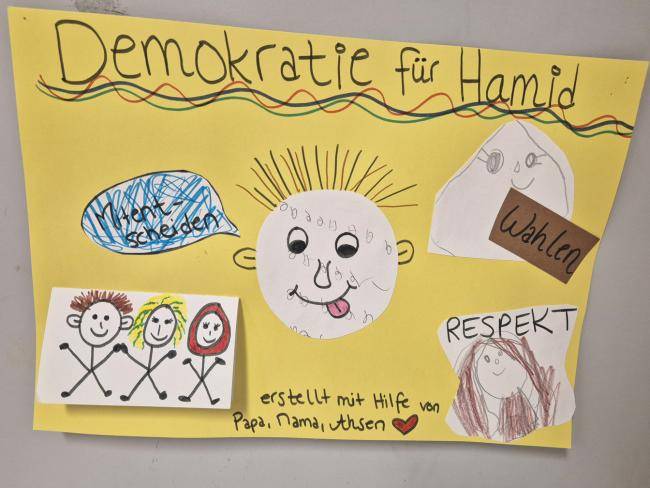 Demokratie für Hamid
Mitent-
scheiden
Wahlen
RESPEKT
erstellt mit Hilfe von
Papa, Mama, Ahsen